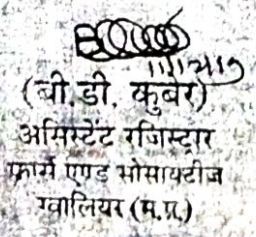 (बी.डी. कुबेर)
असिस्टेंट रजिस्ट्रार
फार्म एण्ड सोसायटीज
ग्वालियर (म.प्र.)